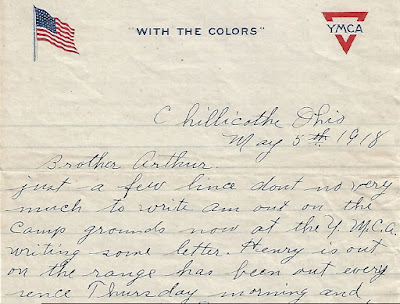 "WITH THE COLORS"
YMCA
Chillicothe Ohio
May 5th 1918
Brother Arthur.
just a few lince dont no very
much to write am out on the
Camp grounds now at the Y.M.C.A.
writing some letter. Henry is out
on the range has been out every
rence Thursday morning and